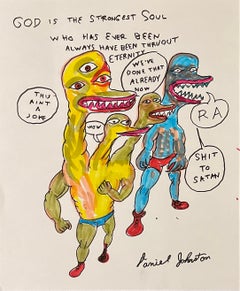 GOD IS THE STRONGEST SOUL
WHO HAS EVER BEEN
ALWAYS HAVE BEEN THRUOUT
ETERNITY
WE'VE
DONE THAT
ALREADY
NOW
THU
AINT
A
JOKE
WOW
RA
SHIT
TO
SATAN
Daniel Johnston